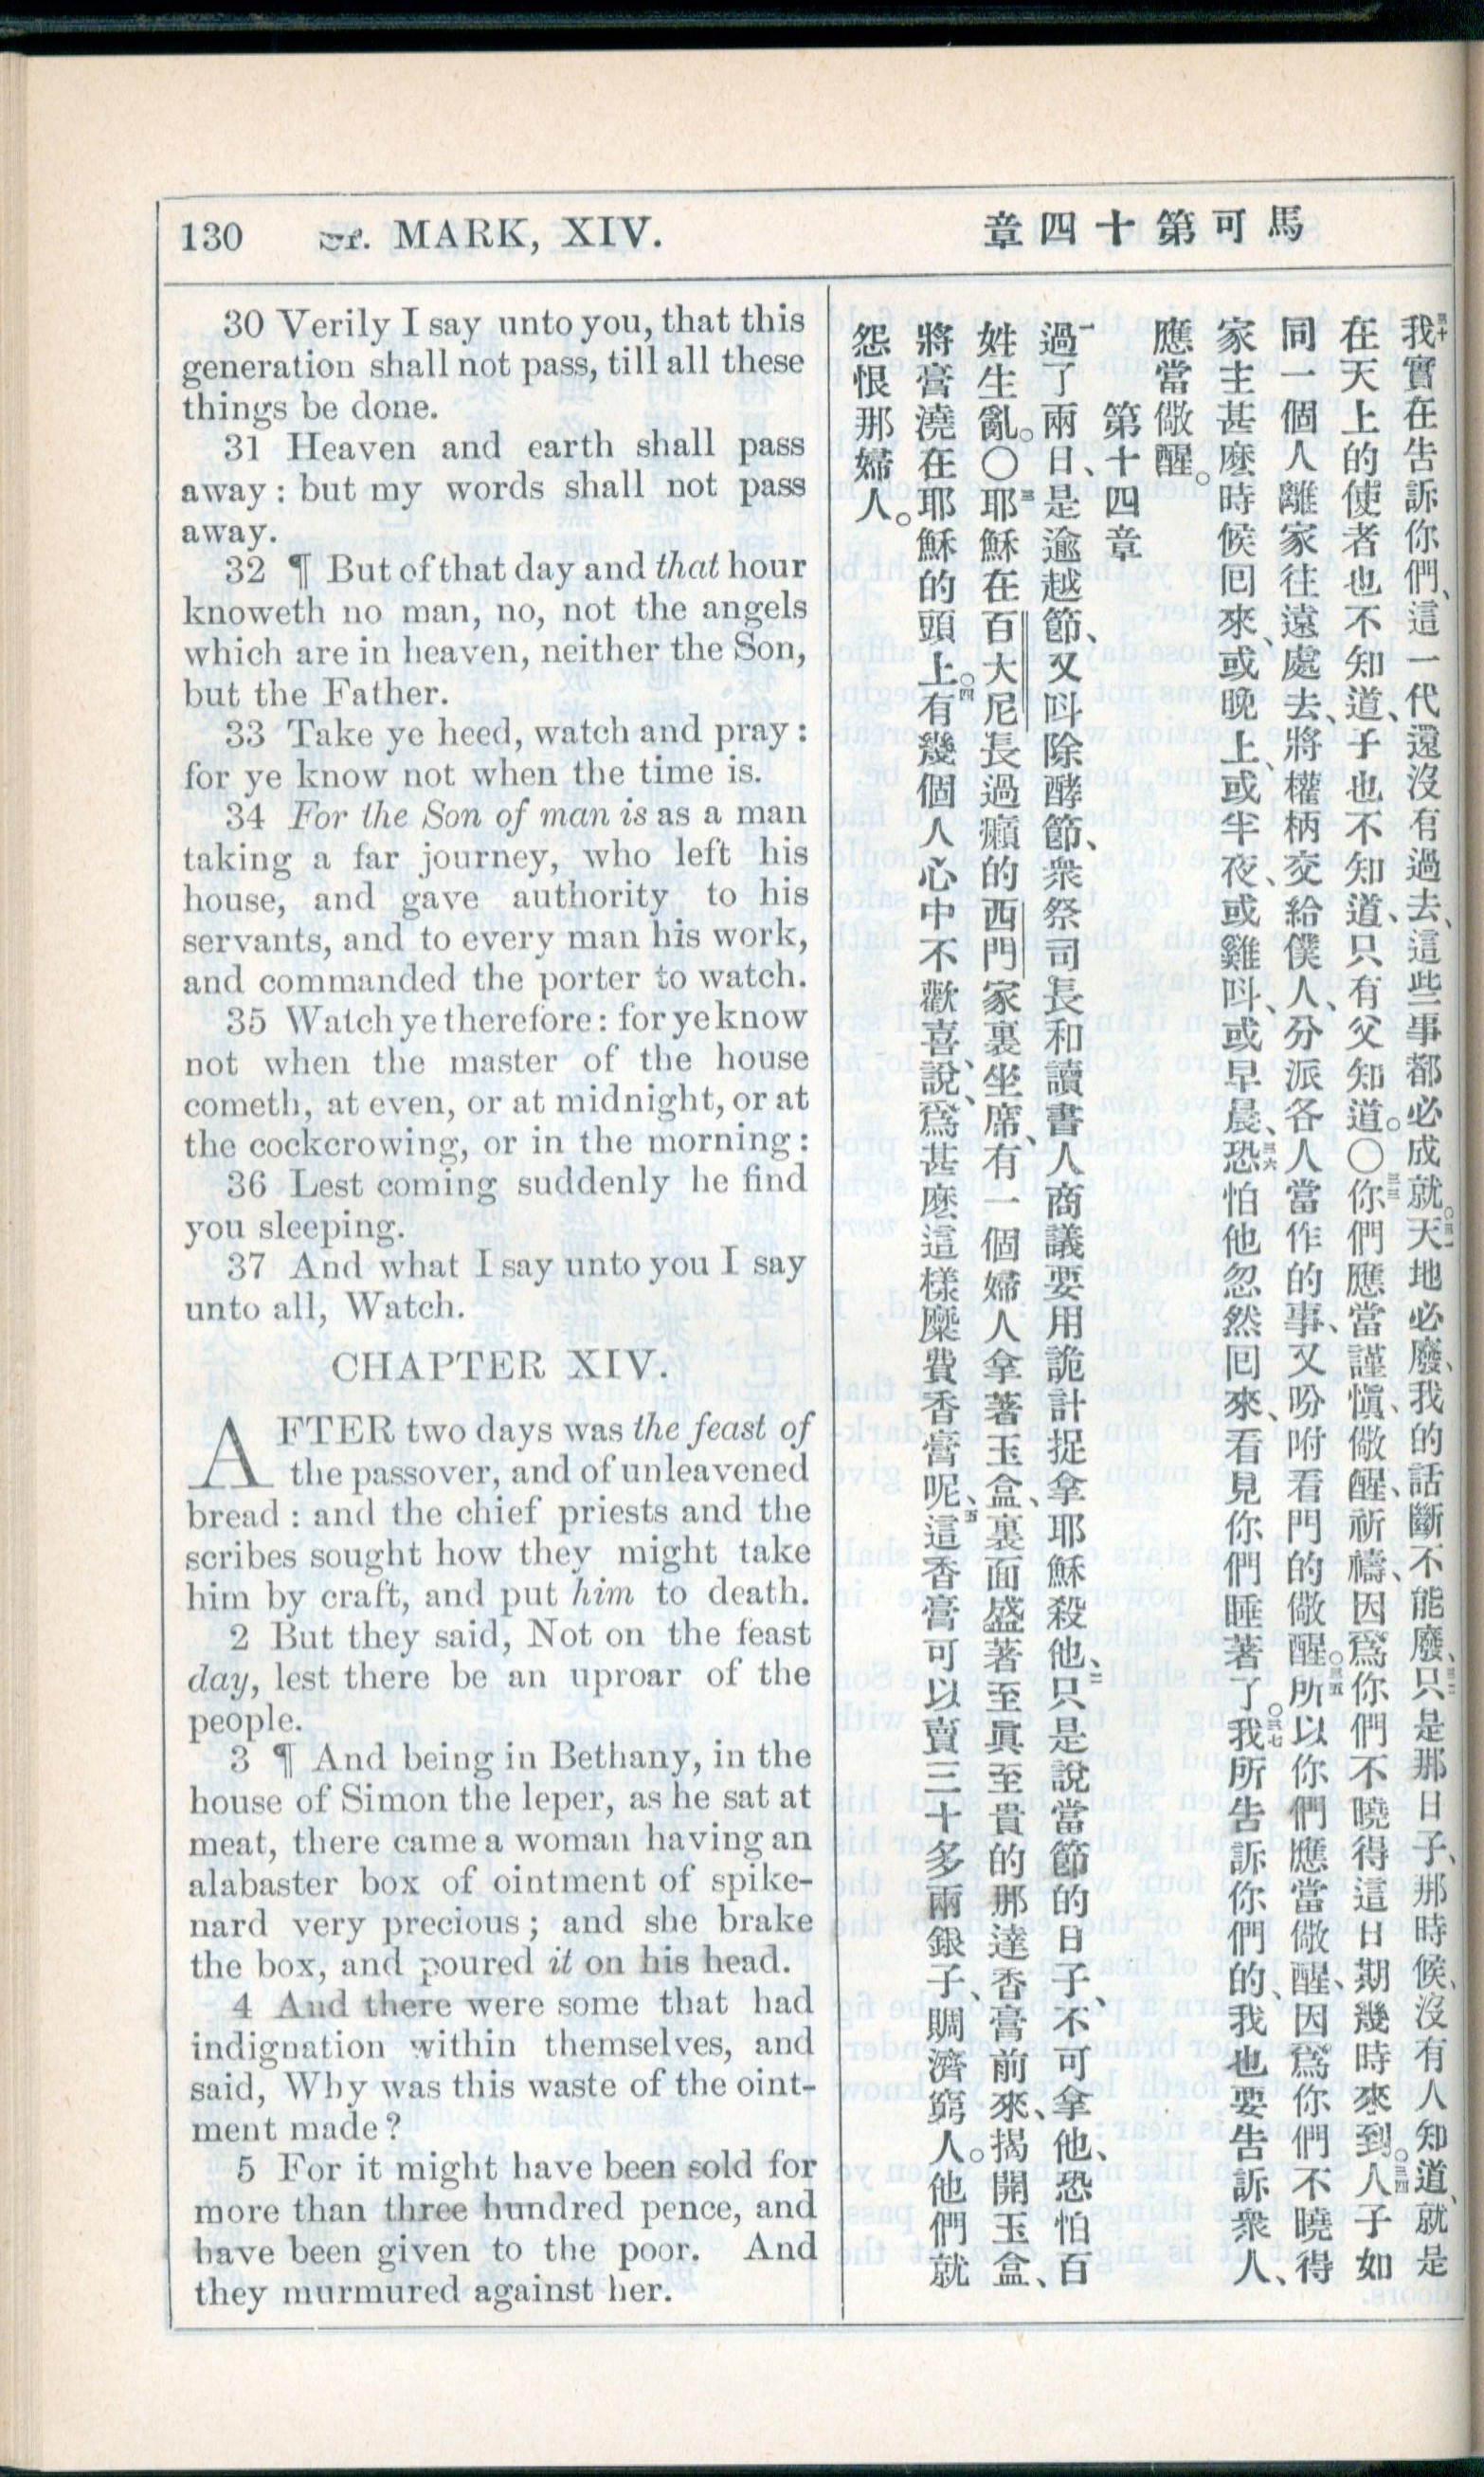 130 ST. MARK, XIV.
章四十第可馬
30 Verily I say unto you, that this
generation shall not pass, till all these
things be done.
31 Heaven and earth shall pass
away: but my words shall not pass
away.
32 ¶ But of that day and that hour
knoweth no man, no, not the angels
which are in heaven, neither the Son,
but the Father.
33 Take ye heed, watch and pray:
for ye know not when the time is.
34 For the Son of man is as a man
taking a far journey, who left his
house, and gave authority to his
servants, and to every man his work,
and commanded the porter to watch.
35 Watch ye therefore: for ye know
not when the master of the house
cometh, at even, or at midnight, or at
the cockcrowing, or in the morning:
36 Lest coming suddenly he find
you sleeping.
37 And what I say unto you I say
unto all, Watch.
CHAPTER XIV.
AFTER two days was the feast of
the passover, and of unleavened
bread: and the chief priests and the
scribes sought how they might take
him by craft, and put him to death.
2 But they said, Not on the feast
day, lest there be an uproar of the
people.
3 ¶ And being in Bethany, in the
house of Simon the leper, as he sat at
meat, there came a woman having an
alabaster box of ointment of spike-
nard very precious; and she brake
the box, and poured it on his head.
4 And there were some that had
indignation within themselves, and
said, Why was this waste of the oint-
ment made?
5 For it might have been sold for
more than three hundred pence, and
have been given to the poor. And
they murmured against her.
三十我實在告訴你們、這一代還沒有過去、這些事都必成就。○三一天地必廢、我的話斷不能廢、三二只是那日子、那時候、沒有人知道、就是
在天上的使者也不知道、子也不知道、只有父知道。○三三你們應當謹愼、儆醒、祈禱、因爲你們不曉得這日期幾時來到。○三四人子如
同一個人離家往遠處去、將權柄交給僕人、分派各人當作的事、又吩咐看門的儆醒。○三五所以你們應當儆醒、因爲你們不曉得
家主甚麽時候囘來、或晚上、或半夜、或雞呌、或早晨、三六恐怕他忽然囘來、看見你們睡著了。○三七我所告訴你們的、我也要告訴衆人、
應當儆醒。
第十四章
一過了兩日、是逾越節、又呌除酵節、衆祭司長和讀書人商議要用詭計捉拿耶穌殺他、二只是說當節的日子、不可拿他、恐怕百
姓生亂。○三耶穌在百大尼長過癩的西門家裏坐席、有一個婦人拿著玉盒、裏面盛著至眞至貴的那達香膏前來、揭開玉盒、
將膏澆在耶穌的頭上。○四有幾個人心中不歡喜、說、爲甚麽這樣糜費香膏呢、五這香膏可以賣三十多兩銀子、賙濟窮人。他們就
怨恨那婦人。